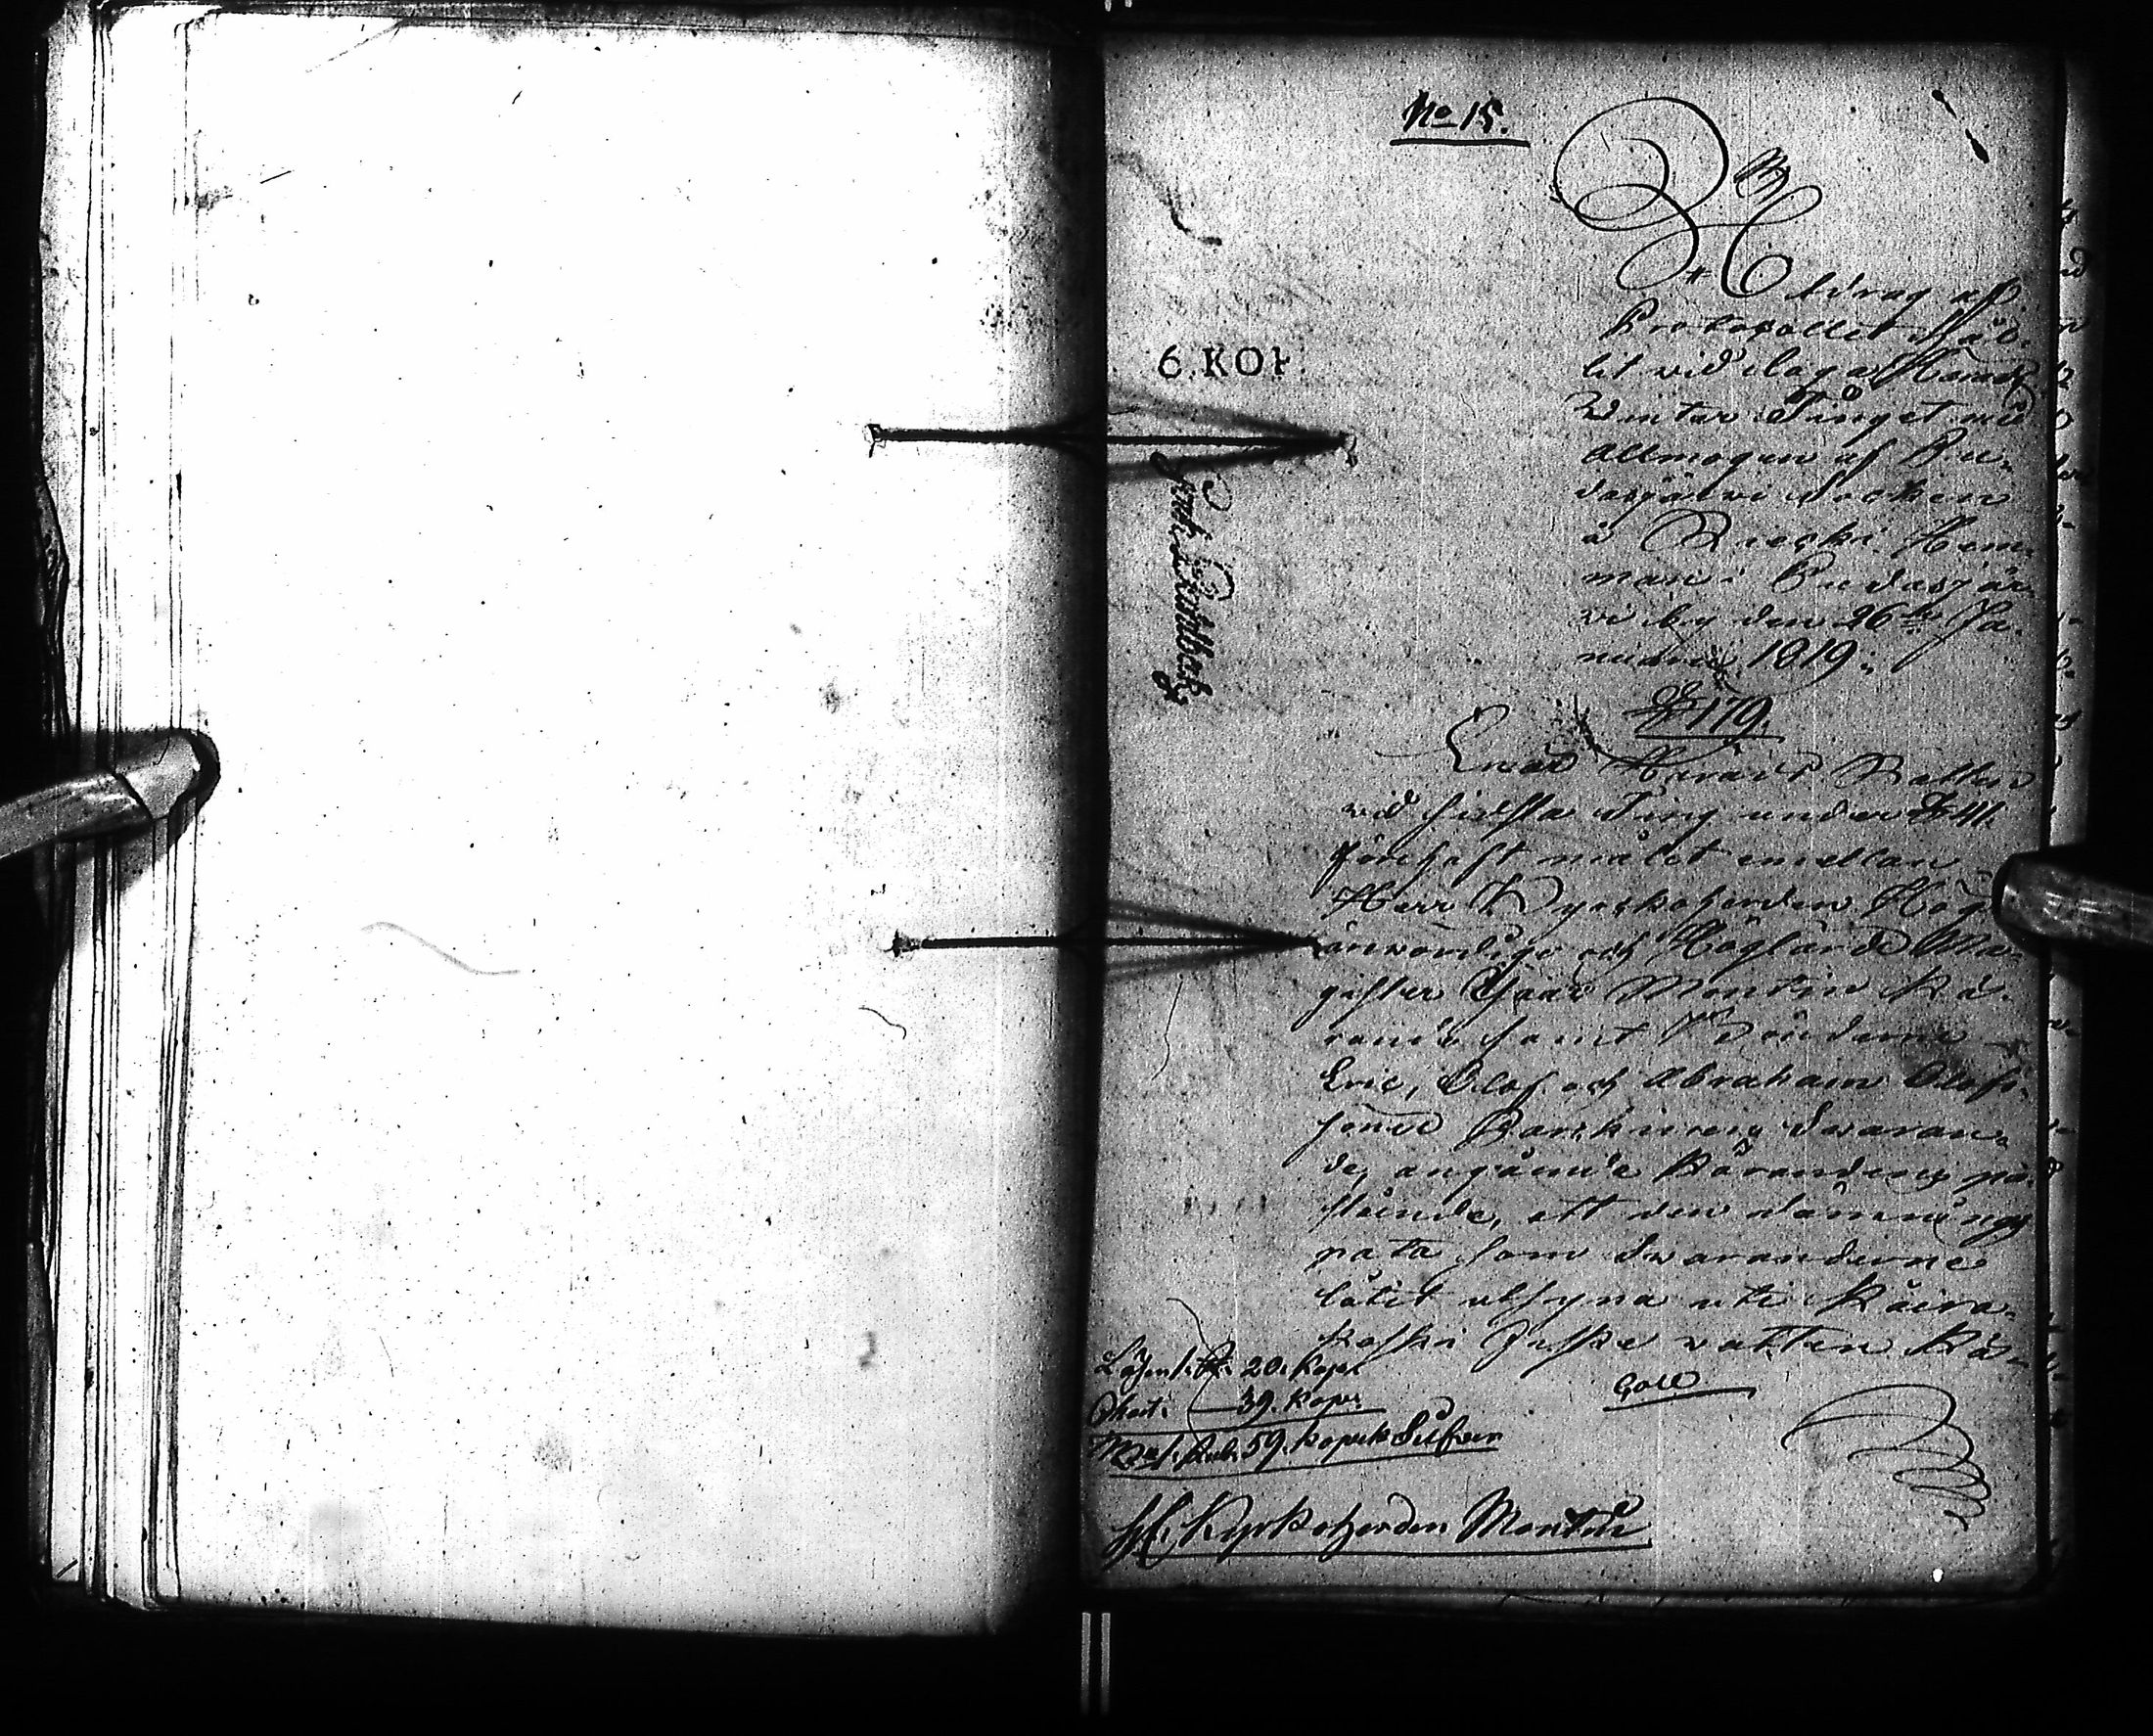 No 15.
Utdrag af
Protocollet hål-
lit vid laga Härads
Winter Tinget med
Allmogen af Pu-
dasjärvi Socken
å Rieski Hem-
man i Pudasjär-
vi by den 26te Ja-
nuarii 1819.
6. KOP.
§ 179.
Emot Härads Rätten
vid sidsta Ting under § 41.
förehaft målet emellan
Herr Kyrkoherden Hög-
ärevördige och Höglärde Ma-
gister Isaac Montin Kä-
rande samt Bönderne
Eric, Olof och Abraham Olofs-
söner Parkinen Svaran-
de, angående Kärandens på-
stående, att den
pata som Svaranderne
låtit utsyna uti Käira-
koski Fiske vatten
Lösen S. R. 20. Kopek
Chart. — 39. Kop.
S. Rub. 59. Kopek Silfver
Hr Kyrkoherden Montin